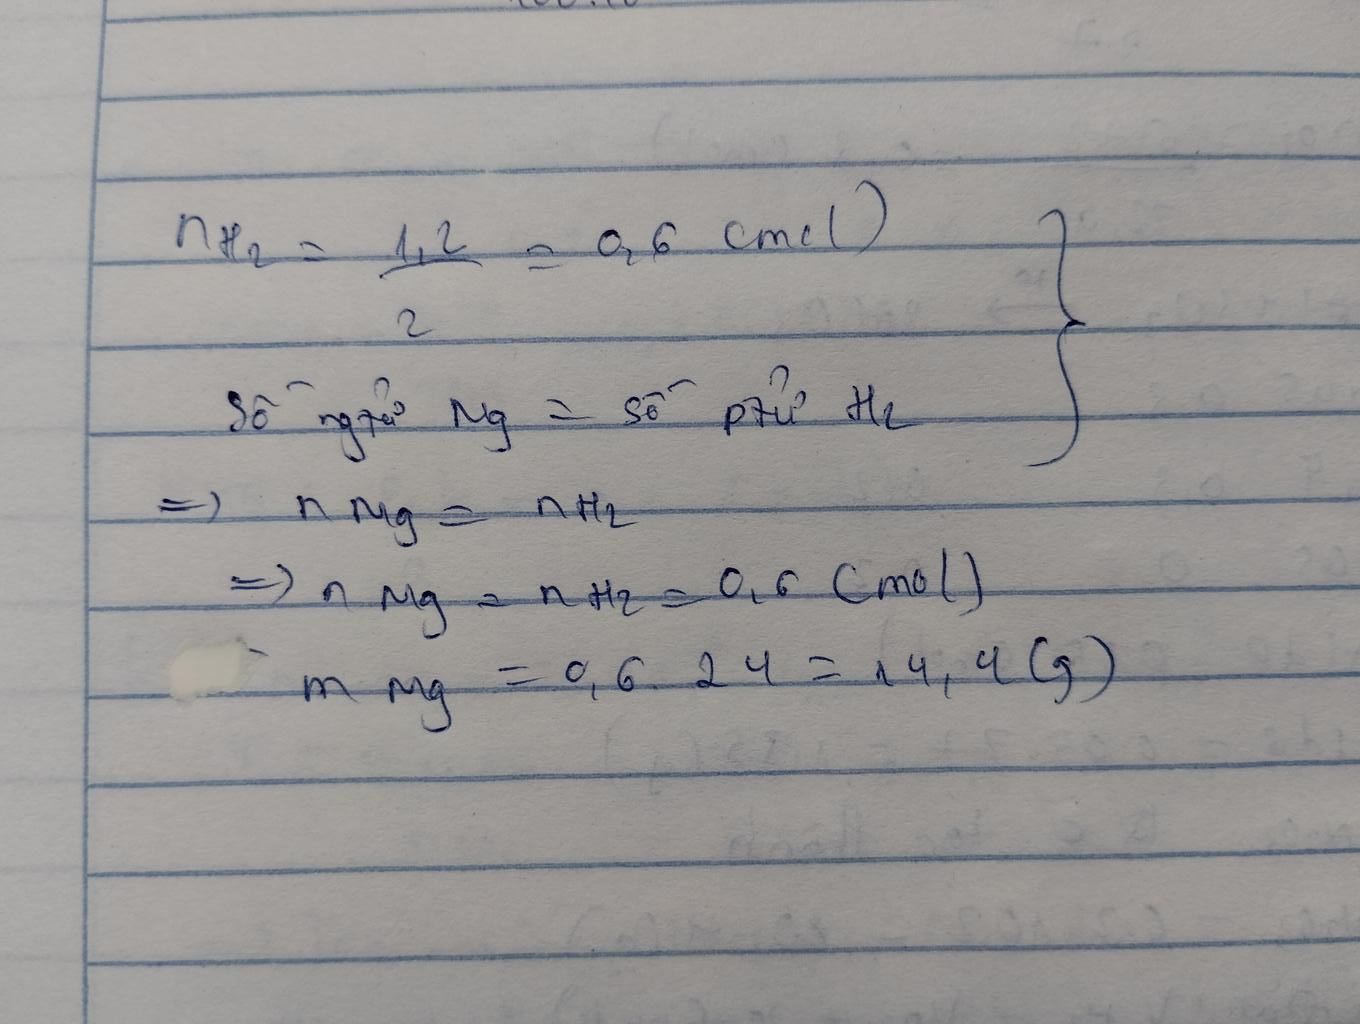 nH2 = 1,2/2 = 0,6 (mol)
Số ngtử Mg = số ptử H2
=> nMg = nH2
=> nMg = nH2 = 0,6 (mol)
mMg = 0,6.24 = 14,4 (g)